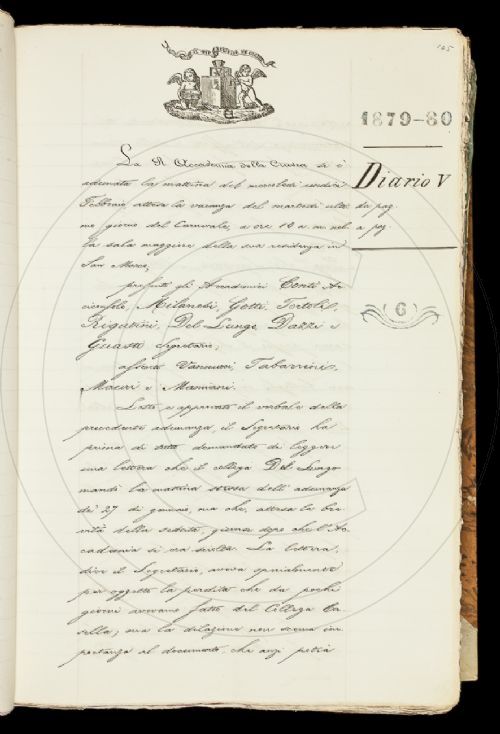 105
IL PIÙ BEL FIOR NE COGLIE
1879-80
Diario V
da pag.
a pag.
(6)
La R. Accademia della Crusca si è
adunata la mattina del mercoledì undici
Febbraio, attesa la vacanza del martedì ulti-
mo giorno del Carnevale, a ore 10 a. m. nel-
la sala maggiore della sua residenza in
San Marco;
presenti gli Accademici Conti Ar-
ciconsolo, Milanesi, Gotti, Tortoli,
Rigutini, Del Lungo, Dazzi e
Guasti Segretario;
assenti Vannucci, Tabarrini,
Mauri e Mamiani.
Letto e approvato il verbale della
precedente adunanza, il Segretario ha
prima di tutto domandato di leggere
una lettera che il collega Del Lungo
mandò la mattina stessa dell'adunanza
de' 27 di gennaio, ma che, attesa la bre-
vità della seduta, giunse dopo che l'Ac-
cademia si era sciolta. La lettera,
disse il Segretario, aveva specialmente
per oggetto la perdita che da pochi
giorni avevamo fatto del Collega Ca-
sella; ma la dilazione non scema im-
portanza al documento, che anzi potrà